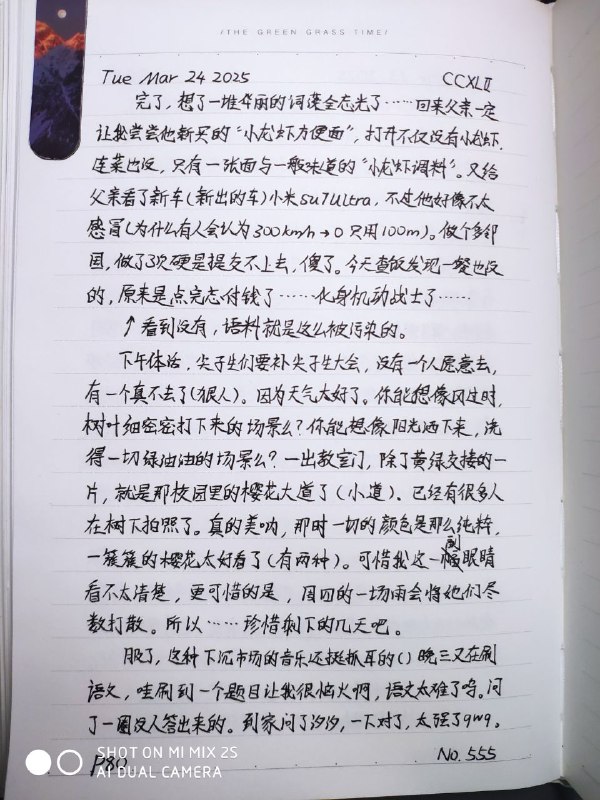 /THE GREEN GRASS TIME/
Tue Mar 24 2025 CCXLII
完了，想了一堆华丽的词藻全忘光了……回来父亲一定
让我尝尝他新买的“小龙虾方便面”，打开不仅没有小龙虾，
连菜也没，只有一张面与一般味道的“小龙虾调料”。又给
父亲看了新车(新出的车)小米SU7Ultra，不过他好像不太
感冒(为什么有人会认为300km/h→0只用100m)。做个多邻
国，做了3次硬是提交不上去，傻了。今天查饭发现一餐也没
的，原来是点完忘付钱了……化身机动战士了……
↑看到没有，语料就是这么被污染的。
下午体活，尖子生们要补尖子生大会，没有一个人愿意去，
有一个真不去了(狠人)。因为天气太好了。你能想像风过时，
树叶细密密打下来的场景么？你能想像阳光洒下来，洗
得一切绿油油的场景么？一出教室门，除了黄绿交接的一
片，就是那校园里的樱花大道了(小道)、已经有很多人
在树下拍照了。真的美呐，那时一切的颜色是那么纯粹，
一簇簇的樱花太好看了(有两种)。可惜我这一副眼睛
看不太清楚，更可惜的是，周四的一场雨会将她们尽
数打散。所以……珍惜剩下的几天吧。
服了，这种下沉市场的音乐还挺抓耳的()晚三又在刷
语文，哇刷到一个题目让我很恼火啊，语文太难了呜。问
了一圈没人答出来的。到家问了汐汐，一下对了，太强了qwq。
P80 No. 555
SHOT ON MI MIX 2S
AI DUAL CAMERA